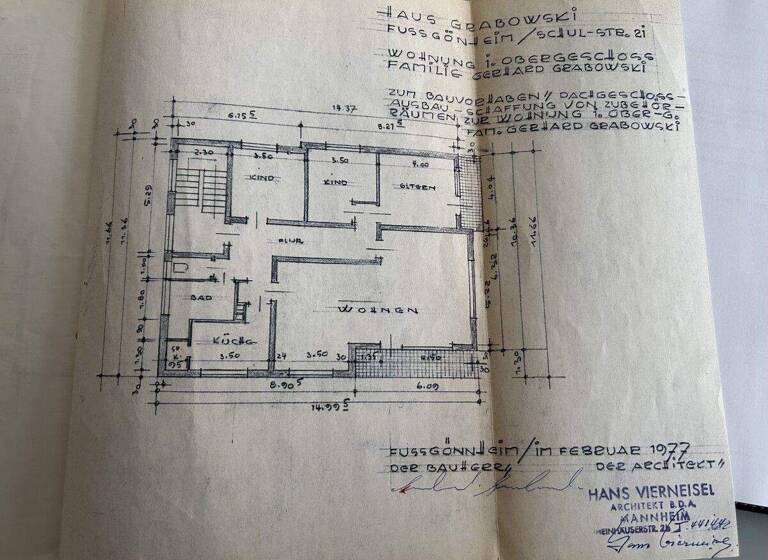 HAUS GRABOWSKI
FUSSGÖNHEIM/SCHUL-STR. 21
WOHNUNG I. OBERGESCHOSS
FAMILIE GERHARD GRABOWSKI
ZUM BAUVORHABEN" DACHGESCHOSS-
AUSBAU-SCHAFFUNG VON ZUBEHÖR-
RÄUMEN ZUR WOHNUNG I. OBER-G.
FAM. GERHARD GRABOWSKI
14.37
6.15⁵ 8.21⁵
30 30
2.30 3.50 3.50 4.00
KIND KIND
FLUR
BAD
WOHNEN
KÜCHE
3.50 24 3.50 30 1.35
95
5.29
11.66
4.04
10.36
11.66
1.30
30
8.90⁵ 6.09
14.99⁵
FUSSGÖNNHEIM/IM FEBRUAR 1977
DER BAUHERR" DER ARCHITEKT"
HANS VIERNEISEL
ARCHITEKT B.D.A.
MANNHEIM